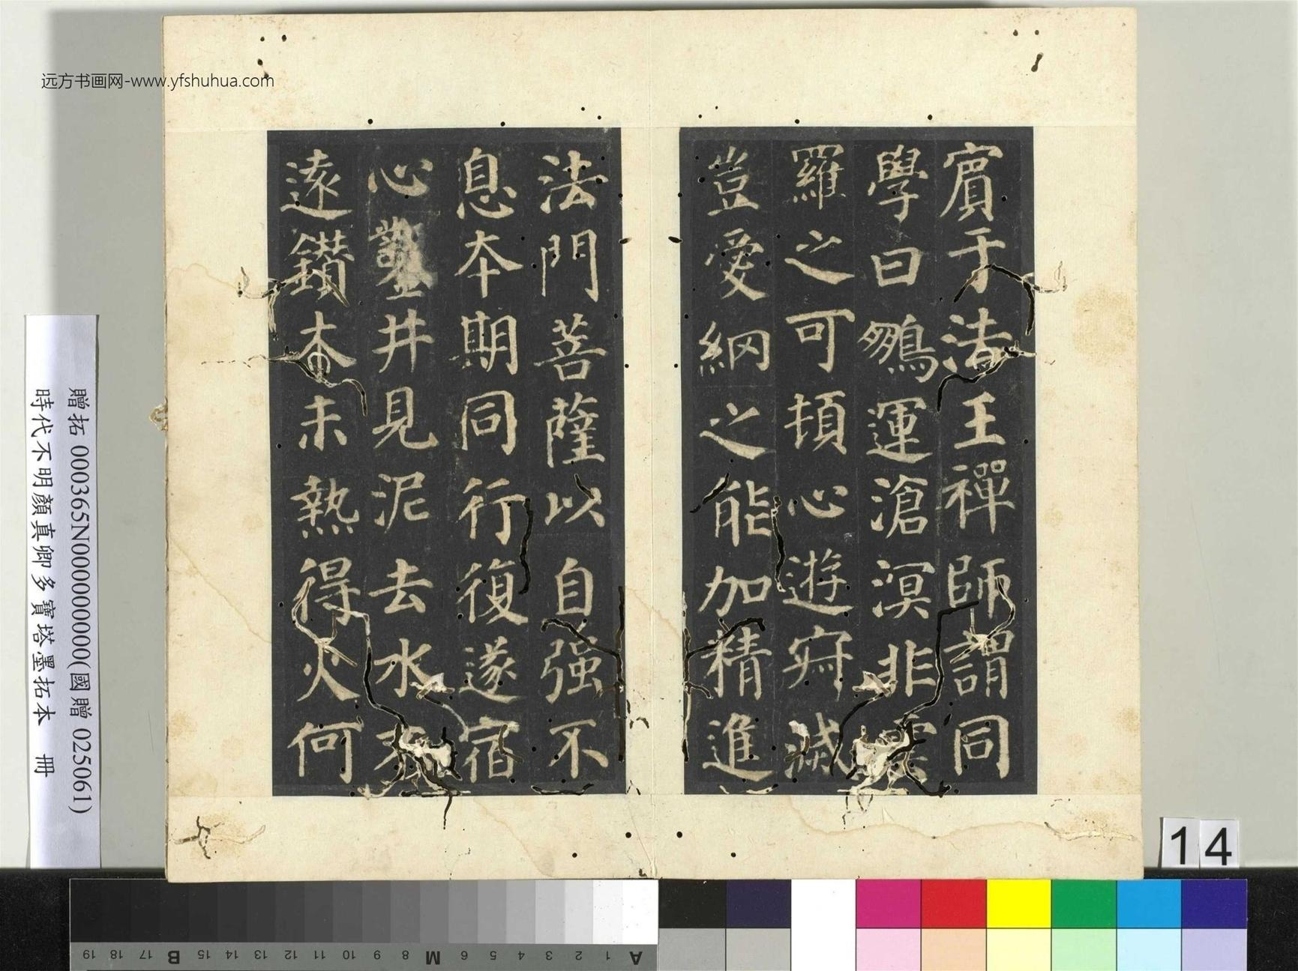 远方书画网-www.yfshuhua.com
賓于法王禪師謂同
學曰鵬運滄溟非雲
羅之可頓心遊寂滅
豈愛網之能加精進
法門菩薩以自强不
息本期同行復遂宿
心鑿井見泥去水不
遠鑽木未熱得火何
贈拓 000365N000000000(國贈 025061)
時代不明顏真卿多寶塔墨拓本 冊
14
19 18 17 B 16 15 14 13 12 11 10 9 8 M 7 6 5 4 3 2 1 A